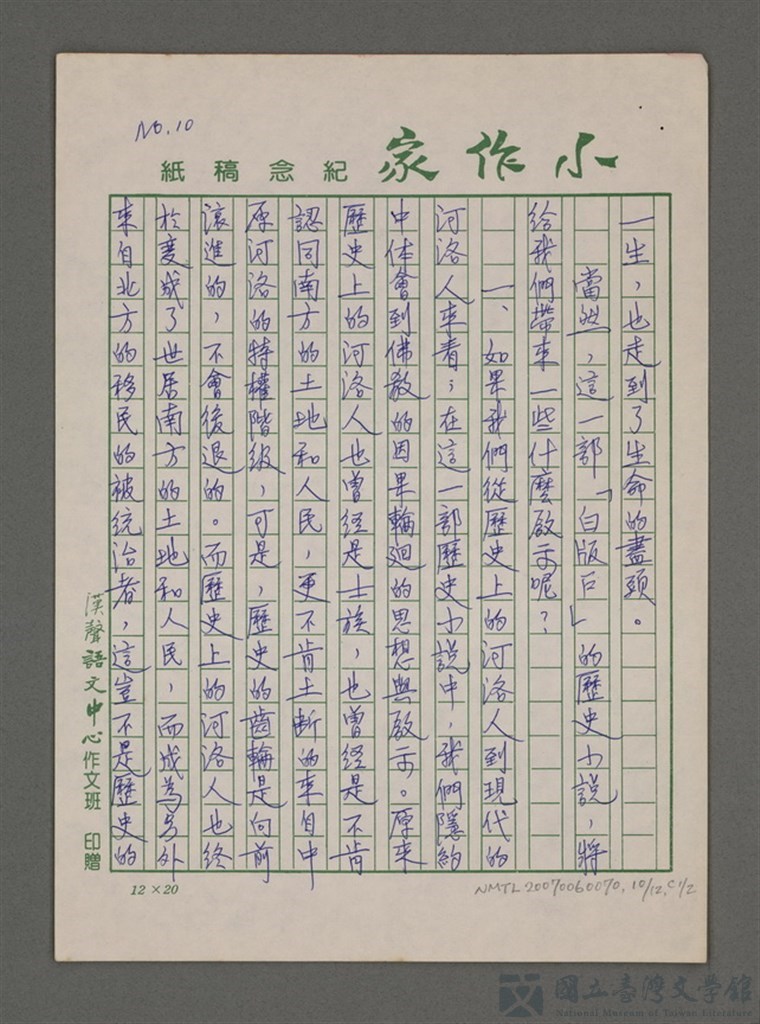 No.10
小作家
紀念稿紙
一生，也走到了生命的盡頭。
當然，這一部「白版戶」的歷史小說，將
給我們帶來一些什麼啟示呢？
一、如果我們從歷史上的河洛人到現代的
河洛人來看；在這一部歷史小說中，我們隱約
中体會到佛教的因果輪廻的思想與啟示。原來
歷史上的河洛人也曾經是士族，也曾經是不肯
認同南方的土地和人民，更不肯土断的來自中
原河洛的特權階級，可是，歷史的齒輪是向前
滾進的，不會後退的。而歷史上的河洛人也終
於變成了世居南方的土地和人民，而成為另外
來自北方的移民的被統治者，這豈不是歷史的
漢聲語文中心作文班 印贈
12×20
NMTL20070060070, 10/12, C1/2
國立臺灣文學館
National Museum of Taiwan Literature